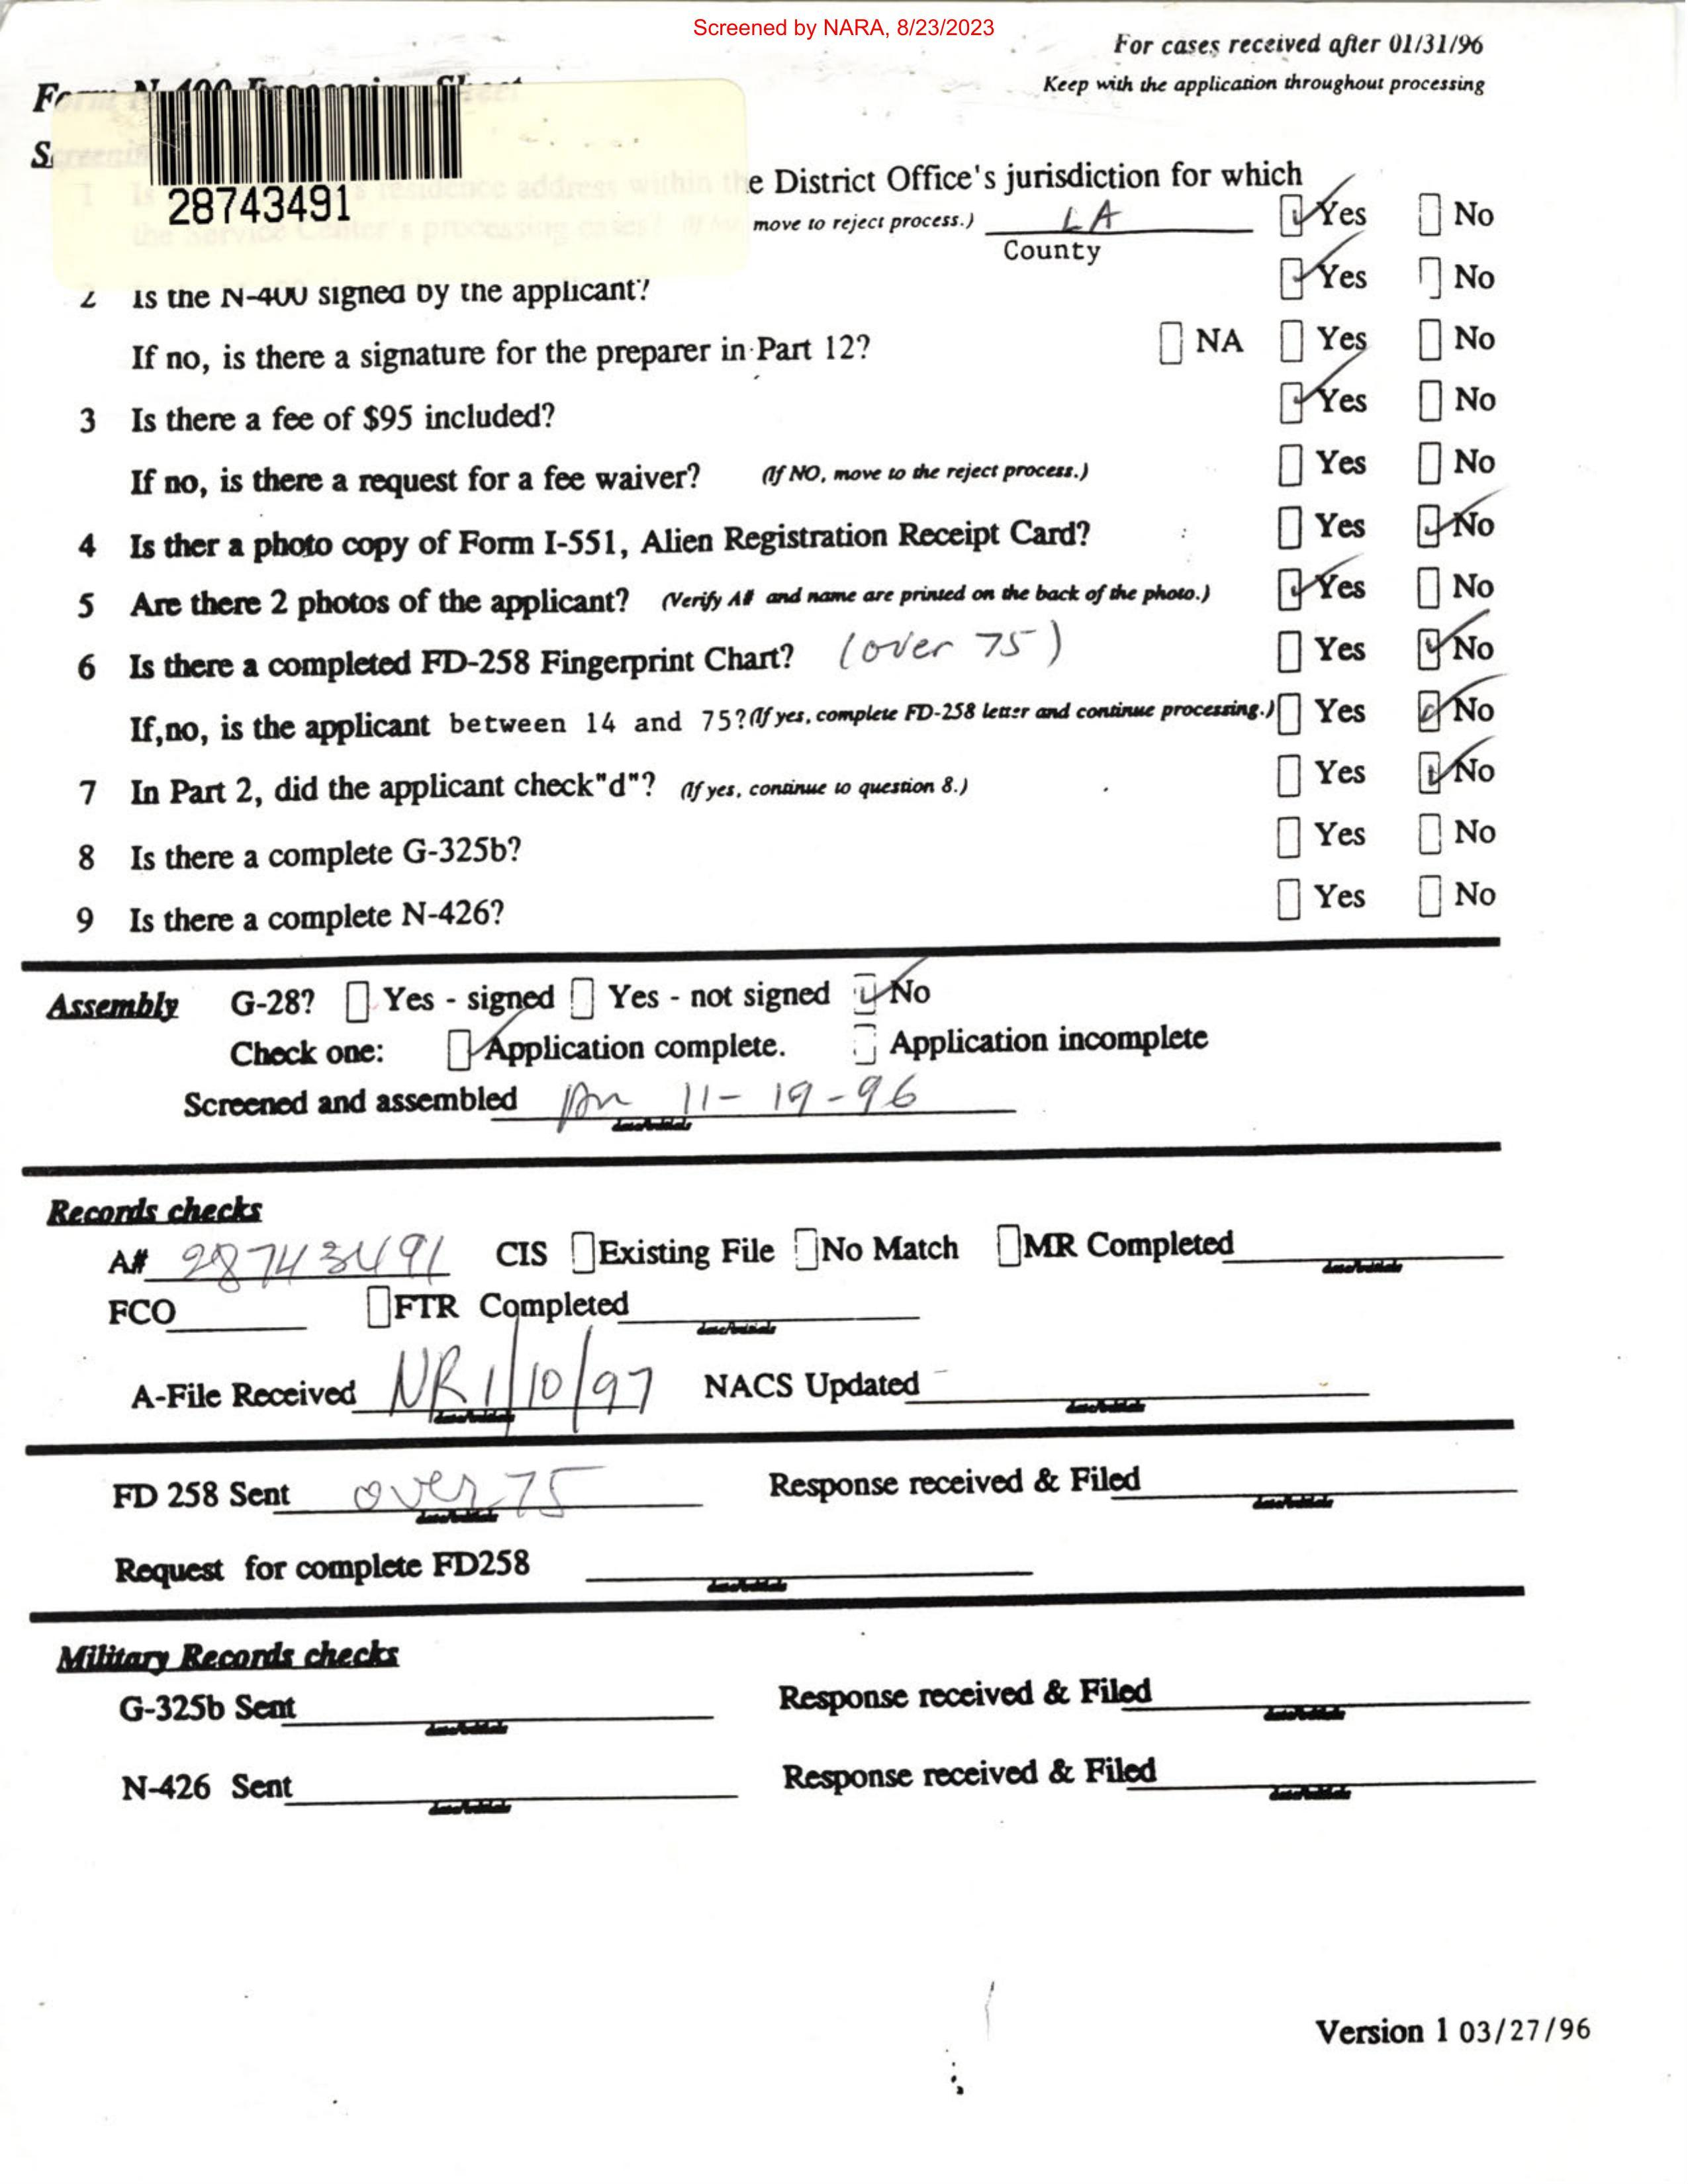 Screened by NARA, 8/23/2023
For cases received after 01/31/96
Keep with the application throughout processing
Form N-400 Processing Sheet
Screening
28743491
1 Is residence address within the District Office's jurisdiction for which
the Service Center's processing cases? (If no move to reject process.) LA County Yes No
2 Is the N-400 signed by the applicant? Yes No
If no, is there a signature for the preparer in Part 12? NA Yes No
3 Is there a fee of $95 included? Yes No
If no, is there a request for a fee waiver? (If NO, move to the reject process.) Yes No
4 Is ther a photo copy of Form I-551, Alien Registration Receipt Card? Yes No
5 Are there 2 photos of the applicant? (Verify A# and name are printed on the back of the photo.) Yes No
6 Is there a completed FD-258 Fingerprint Chart? (over 75) Yes No
If,no, is the applicant between 14 and 75? (If yes, complete FD-258 letter and continue processing.) Yes No
7 In Part 2, did the applicant check"d"? (If yes, continue to question 8.) Yes No
8 Is there a complete G-325b? Yes No
9 Is there a complete N-426? Yes No
Assembly G-28? Yes - signed Yes - not signed No
Check one: Application complete. Application incomplete
Screened and assembled 11-19-96
date/initials
Records checks
A# 28743491 CIS Existing File No Match MR Completed
date/initials
FCO FTR Completed
date/initials
A-File Received NR 1/10/97 NACS Updated
date/initials date/initials
FD 258 Sent over 75 Response received & Filed
date/initials date/initials
Request for complete FD258
date/initials
Military Records checks
G-325b Sent Response received & Filed
date/initials date/initials
N-426 Sent Response received & Filed
date/initials date/initials
Version 1 03/27/96